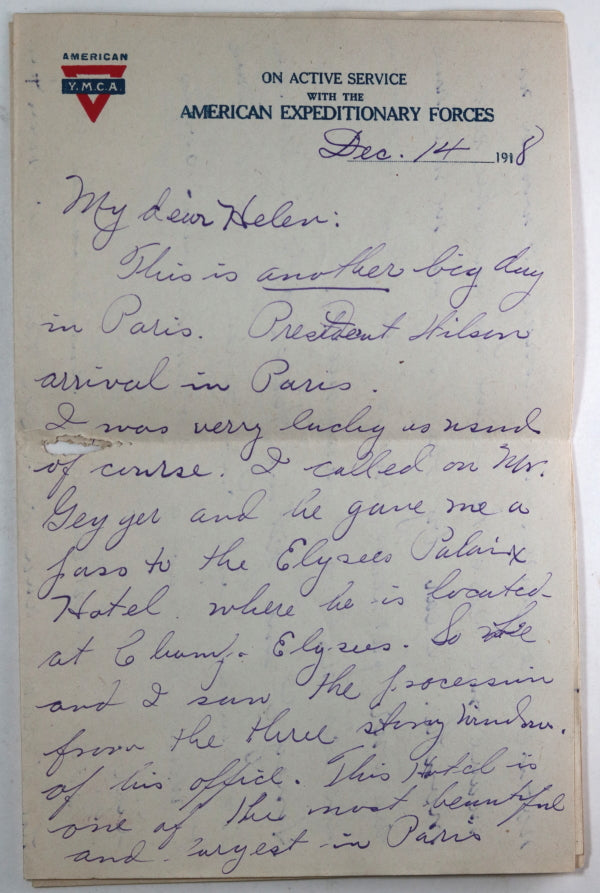 AMERICAN
Y.M.C.A.
ON ACTIVE SERVICE
WITH THE
AMERICAN EXPEDITIONARY FORCES
Dec. 14 1918
My dear Helen:
This is another big day
in Paris. President Wilson
arrival in Paris.
I was verry lucky as usual
of course. I called on Mr.
Geyger and he gave me a
pass to the Elysees Palaix
Hotel where he is located
at Champ. Elysees. So
and I saw the procession
from the three story window.
of his office. This Hotel is
one of the most beautiful
and largest in Paris